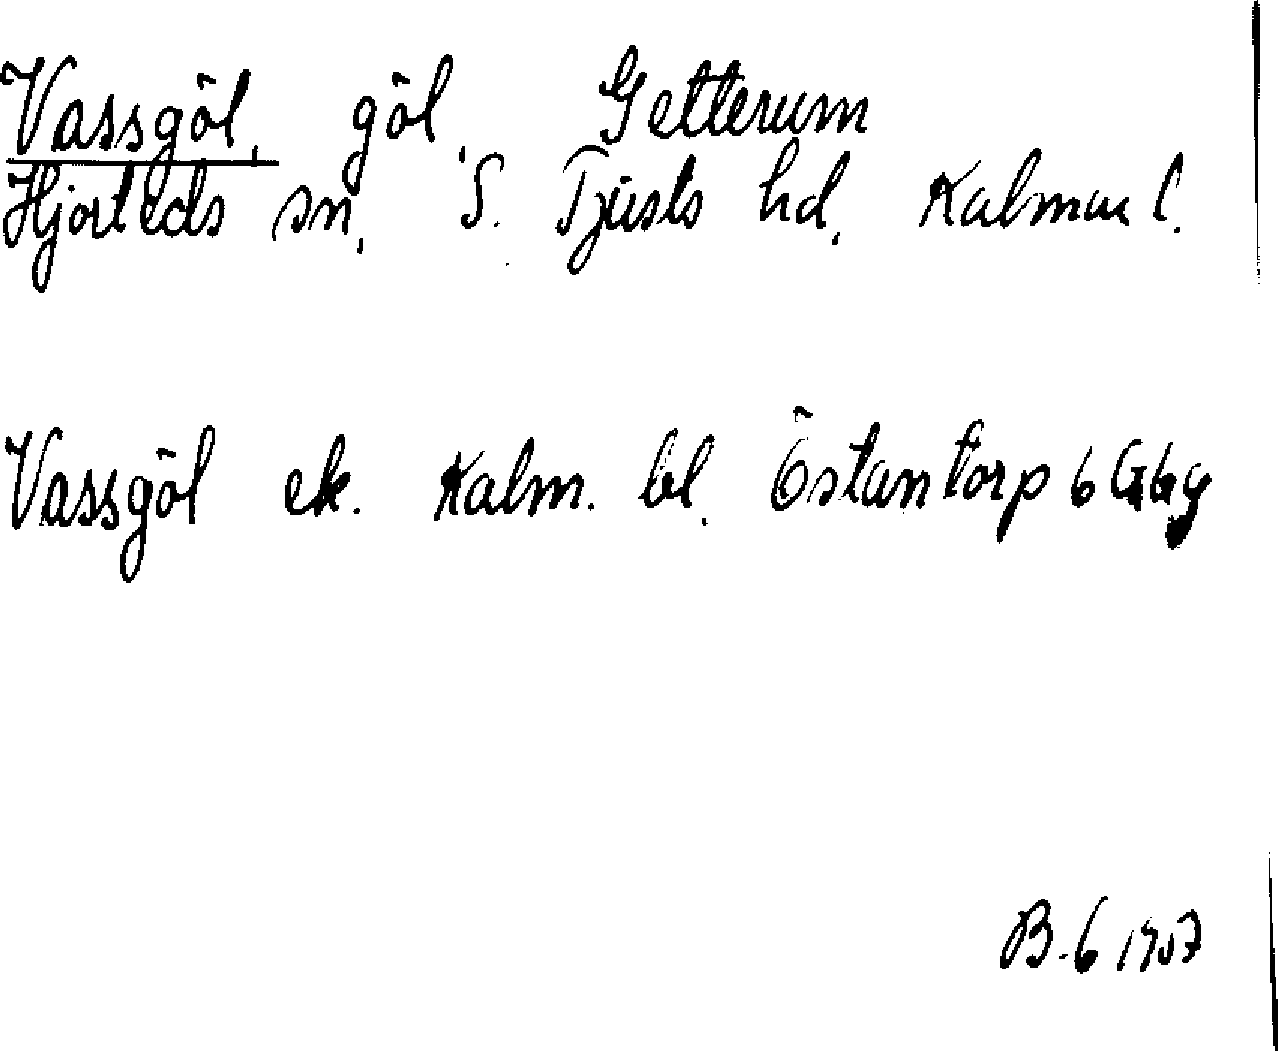 Vassgöl, göl, Getterum
Hjorteds sn, S. Tjusts hd, Kalmar l.
Vassgöl ek. Kalm. bl. Östantorp 6G6g
B.G 1957